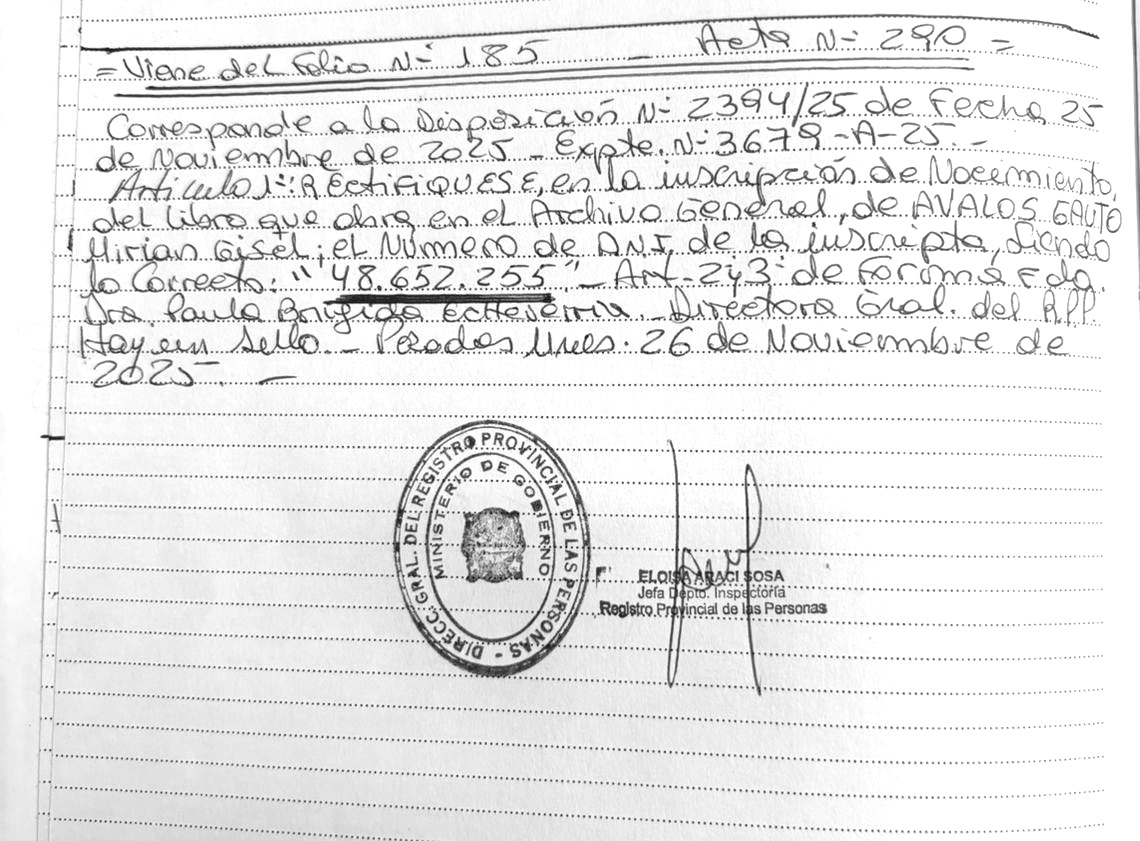 = Viene del Folio Nº 185 — Acta Nº 290 =
Corresponde a la Disposición Nº 2394/25 de Fecha 25
de Noviembre de 2025 - Expte. Nº 3679-A-25.-
Artículo 1º: RECTIFIQUESE, en la inscripción de Nacimiento,
del Libro que obra en el Archivo General, de AVALOS GAUTO
Mirian Gisel; el Número de DNI. de la inscripta, Siendo
lo Correcto: "48.652.255" - Art. 2 y 3 de Forma Fdo.
Dra. Paula Brigida Echeverria - Directora Gral. del R.P.P.
Hay un Sello.- Posadas Mnes. 26 de Noviembre de
2025.-
DIRECC. GRAL. DEL REGISTRO PROVINCIAL DE LAS PERSONAS -
MINISTERIO DE GOBIERNO
ELOISA ARACI SOSA
Jefa Depto. Inspectoría
Registro Provincial de las Personas